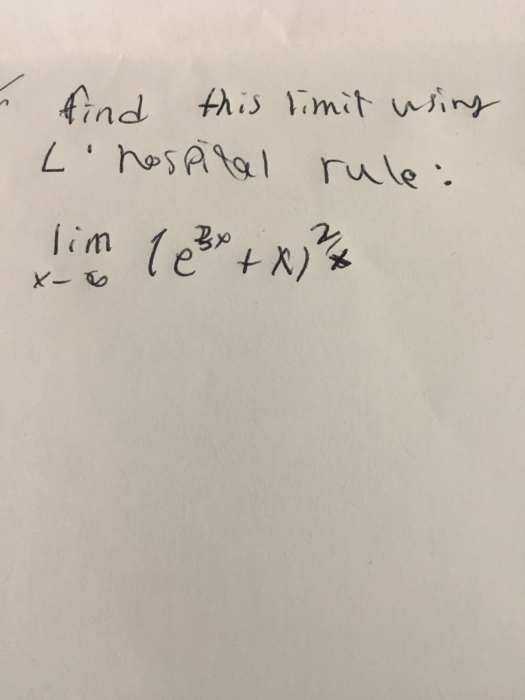 find this limit using
L' hospital rule:
lim (e^3x + x)^2/x
x-∞